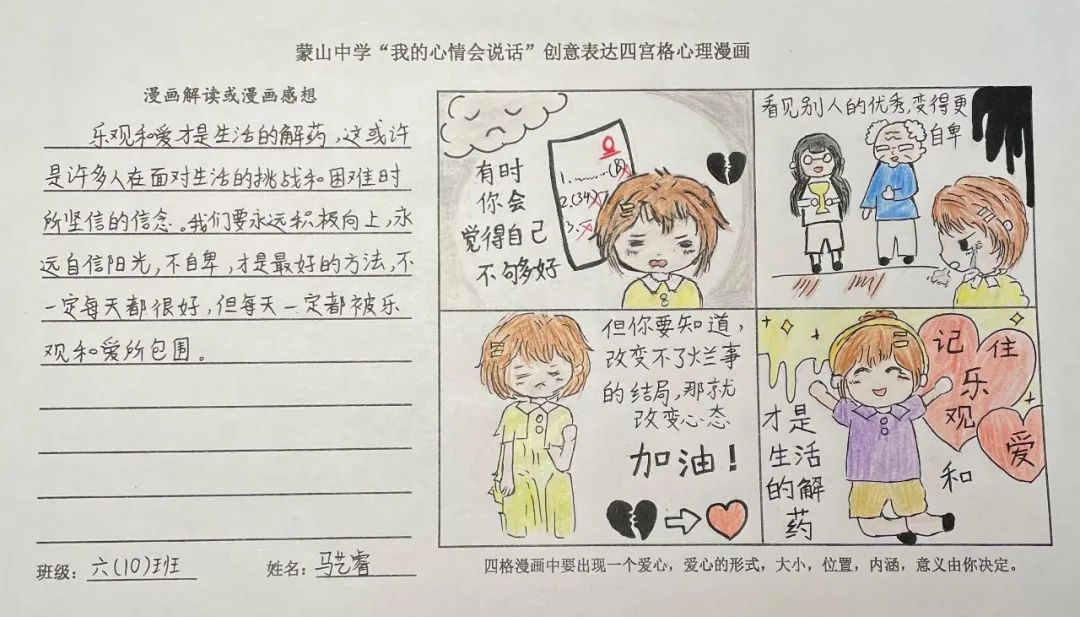 蒙山中学“我的心情会说话”创意表达四宫格心理漫画
漫画解读或漫画感想
乐观和爱才是生活的解药，这或许
是许多人在面对生活的挑战和困难时
所坚信的信念。我们要永远积极向上，永
远自信阳光，不自卑，才是最好的方法，不
一定每天都很好，但每天一定都被乐
观和爱所包围。
班级：六(10)班
姓名：马艺睿
有时
你会
觉得自己
不够好
1.………(B)
2.(34)
3.
看见别人的优秀，变得更
自卑
但你要知道，
改变不了烂事
的结局，那就
改变心态
加油！
记住
乐观
和
爱
才是
生活
的解
药
四格漫画中要出现一个爱心，爱心的形式，大小，位置，内涵，意义由你决定。